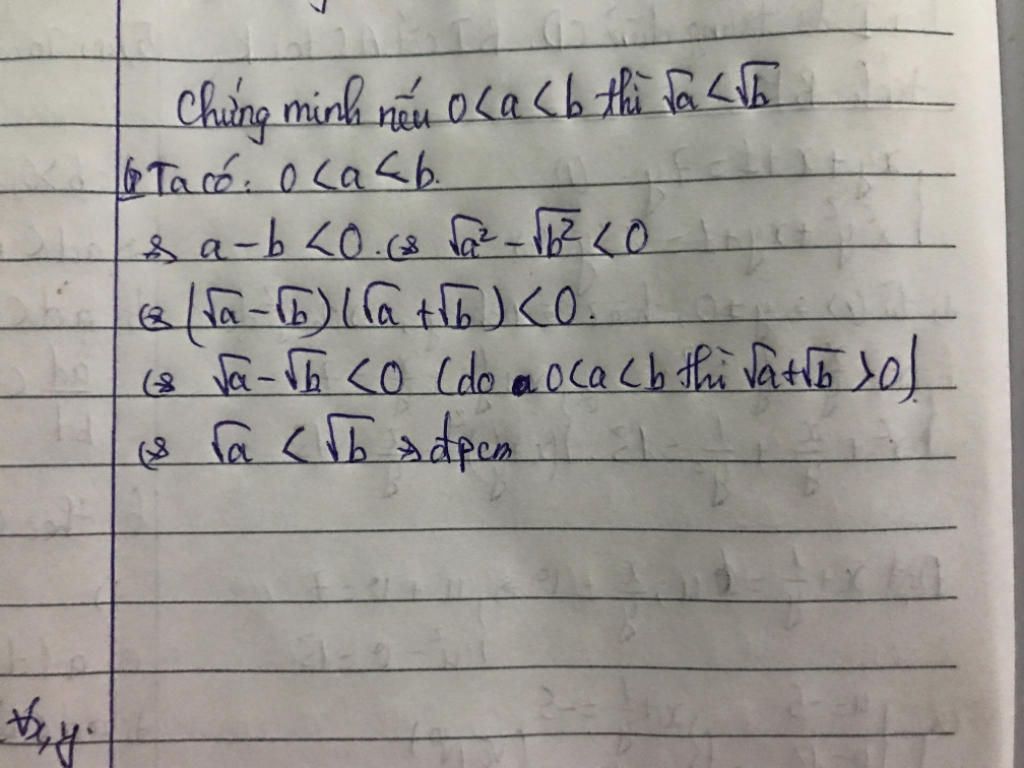 Chứng minh nếu 0 < a < b thì √a < √b
Ta có: 0 < a < b.
⇒ a - b < 0. ⇔ √a² - √b² < 0
⇔ (√a - √b)(√a + √b) < 0.
⇔ √a - √b < 0 (do 0 < a < b thì √a + √b > 0)
⇔ √a < √b ⇒ đpcm
∀x, y.